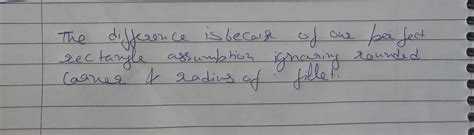 The difference is because of our perfect
rectangle assumption ignoring rounded
corner & radius of fillet.